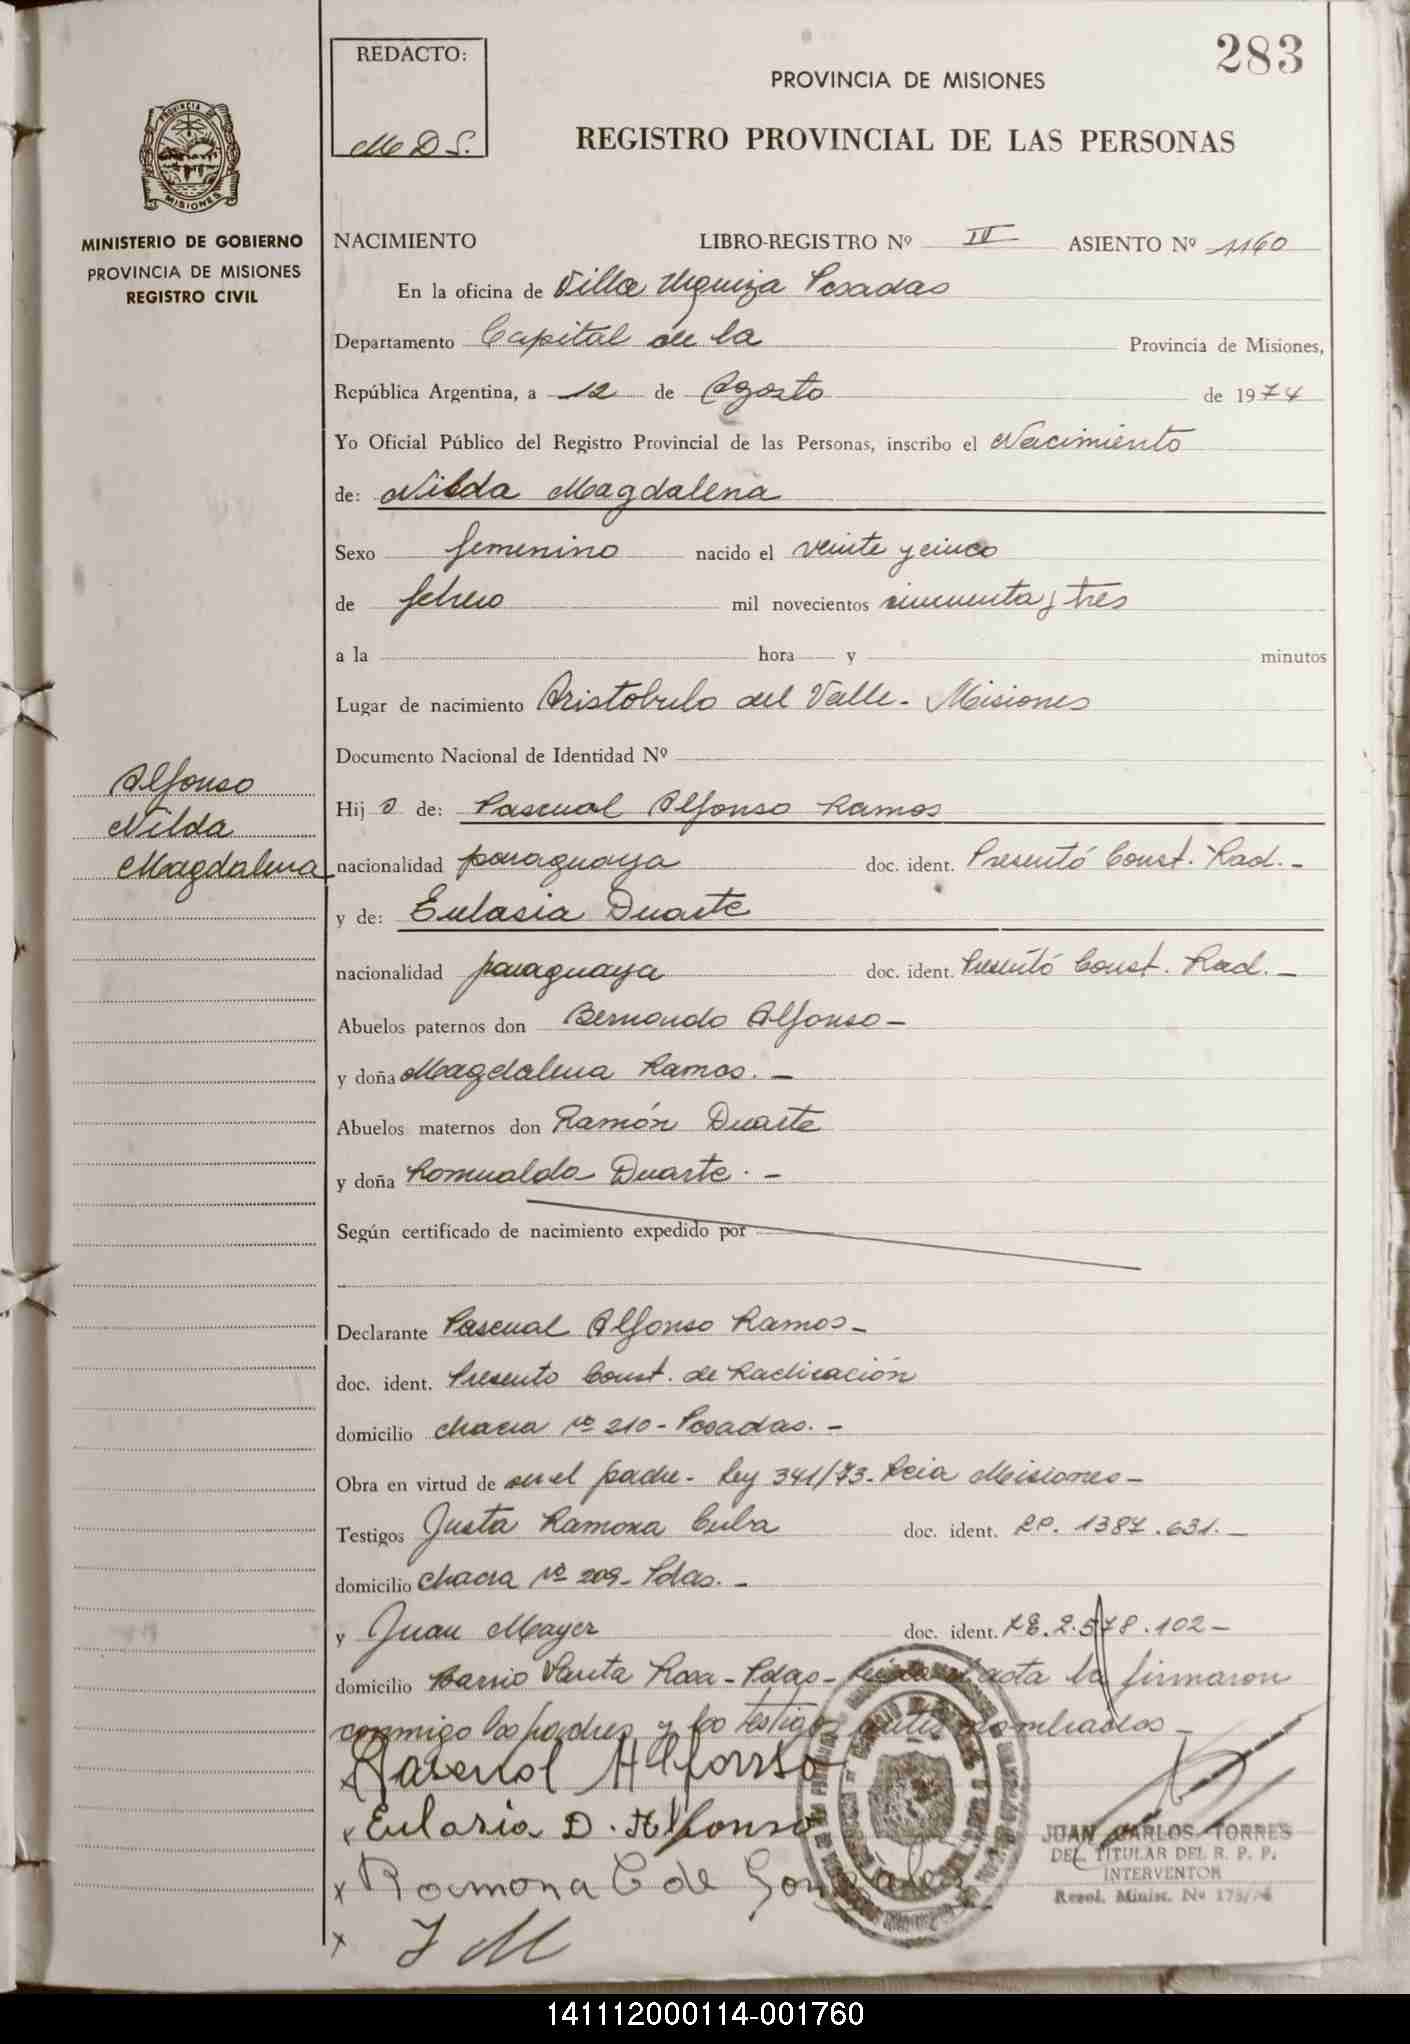 283
REDACTO:
M D S.
PROVINCIA DE MISIONES
REGISTRO PROVINCIAL DE LAS PERSONAS
MISIONES
MINISTERIO DE GOBIERNO
PROVINCIA DE MISIONES
REGISTRO CIVIL
NACIMIENTO LIBRO-REGISTRO Nº IV ASIENTO Nº 1160
En la oficina de Villa Urquiza Posadas
Departamento Capital de la Provincia de Misiones,
República Argentina, a 12 de Agosto de 1974
Yo Oficial Público del Registro Provincial de las Personas, inscribo el Nacimiento
de: Nilda Magdalena
Sexo femenino nacido el veinte y cinco
de febrero mil novecientos cincuenta y tres
a la hora y minutos
Lugar de nacimiento Aristobulo del Valle - Misiones
Documento Nacional de Identidad Nº
Alfonso
Nilda
Magdalena
Hij a de: Pascual Alfonso Ramos
nacionalidad paraguaya doc. ident. Presentó Const. Rad. -
y de: Eulasia Duarte
nacionalidad paraguaya doc. ident. Presentó Const. Rad. -
Abuelos paternos don Bernardo Alfonso -
y doña Magdalena Ramos. -
Abuelos maternos don Ramón Duarte
y doña Romualda Duarte. -
Según certificado de nacimiento expedido por
Declarante Pascual Alfonso Ramos -
doc. ident. Presento Const. de Radicación
domicilio chacra nº 210 - Posadas. -
Obra en virtud de ser el padre - Ley 341/73 - Pcia Misiones -
Testigos Justa Ramona Cuba doc. ident. RP. 1387.631. -
domicilio chacra Nº 209 - Pdas. -
y Juan Mayer doc. ident. LE. 2.578.102 -
domicilio Barrio Santa Rosa - Pdas - acta la firmaron
conmigo los padres y los testigos antes nombrados -
x Pascual Alfonso
x Eulasia D. Alfonso
x Ramona C de Gonzalez
x J M
JUAN CARLOS TORRES
DEL TITULAR DEL R. P. P.
INTERVENTOR
Resol. Minist. Nº 175/74
141112000114-001760